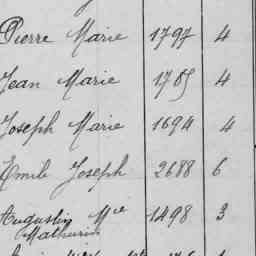 Pierre Marie 1797 4
Jean Marie 1785 4
Joseph Marie 1694 4
Emile Joseph 2688 6
Augustin Mie 1498 3
Mathurin